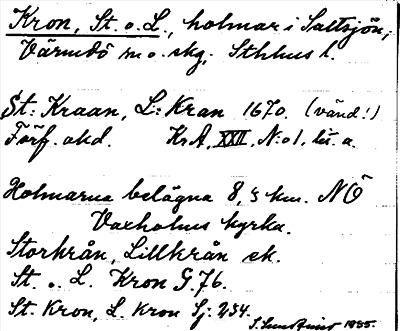 Kron, St. o. L., holmar i Saltsjön,
Värmdö sn o. skg, Sthlms l.
St: Kraan, L: Kran 1670. (vänd!)
Förf. okd. KrA, XXII, N:o 1, lit. a.
Holmarna belägna 8,3 km. NÖ
Vaxholms kyrka.
Storkrån, Lillkrån ek.
St. o. L. Kron G. 76.
St. Kron, L. Kron Sj. 234.
1935.